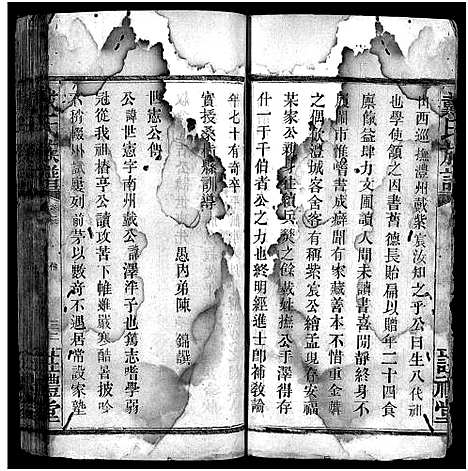 戴氏族譜
山西巡撫澧州戴紫宸汝知之乎公曰生八代祖
也學使領之因書舊德長貽扁以贈年二十四食
廩餼益肆力文圃讀人間未讀書喜閒靜終身不
履闤市惟嗜書成癖聞有家藏善本不惜重金購
之偶飲澧城客舍客有稱紫宸公繪孟現存安福
某家公親身往 兵燹之餘戴姓撫公手澤得存
什一于千伯者公之力也終明經進士即補教諭
實授桑植縣訓導
年七十有奇卒
愚內弟陳 錦撰
世憲公傳
公諱世憲字南州戴公 澤洋子也篤志嗜學弱
冠從我祖椿亭公讀攻苦下帷雖嚴寒酷暑披吟
不 綴州試 刻前茅以數奇不遇居常設家塾
戴氏族譜
註禮堂